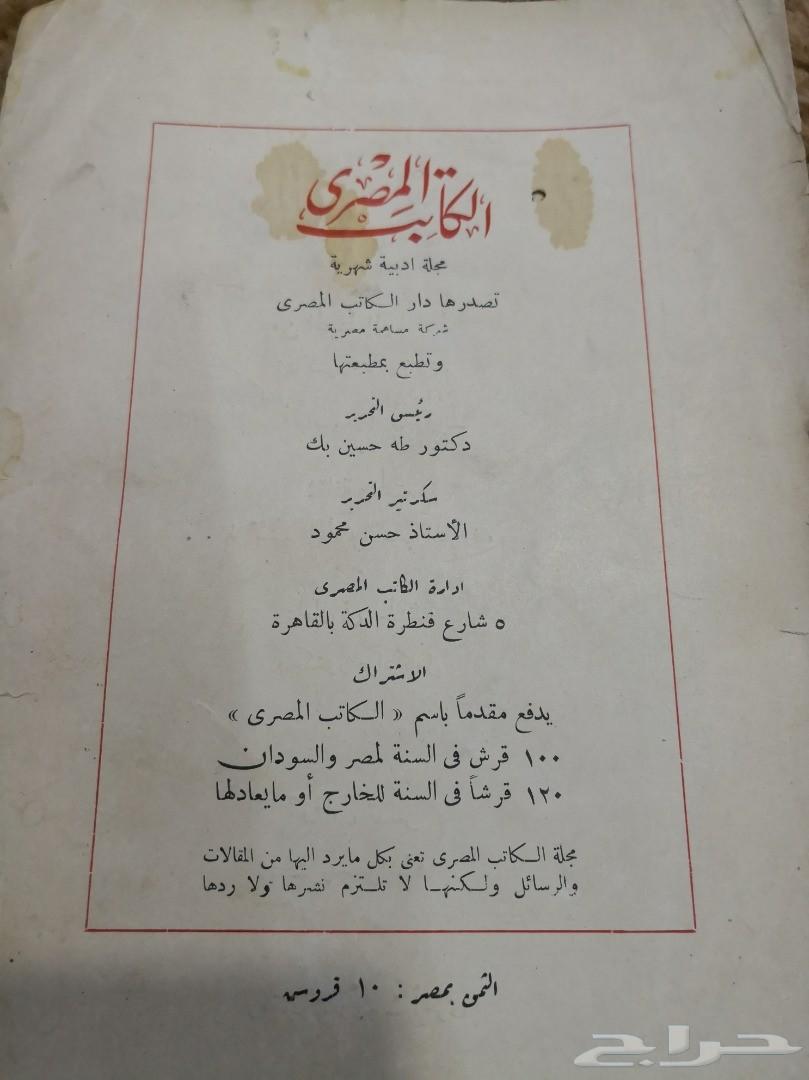 الكاتب المصرى
مجلة ادبية شهرية
تصدرها دار الكاتب المصرى
شركة مساهمة مصرية
وتطبع بمطبعتها
رئيس التحرير
دكتور طه حسين بك
سكرتير التحرير
الأستاذ حسن محمود
ادارة الكاتب المصرى
٥ شارع قنطرة الدكة بالقاهرة
الاشتراك
يدفع مقدماً باسم « الكاتب المصرى »
١٠٠ قرش فى السنة لمصر والسودان
١٢٠ قرشاً فى السنة للخارج أو مايعادلها
مجلة الكاتب المصرى تعنى بكل مايرد اليها من المقالات
والرسائل ولكنها لا تلتزم نشرها ولا ردها
الثمن بمصر : ١٠ قروس
حراج